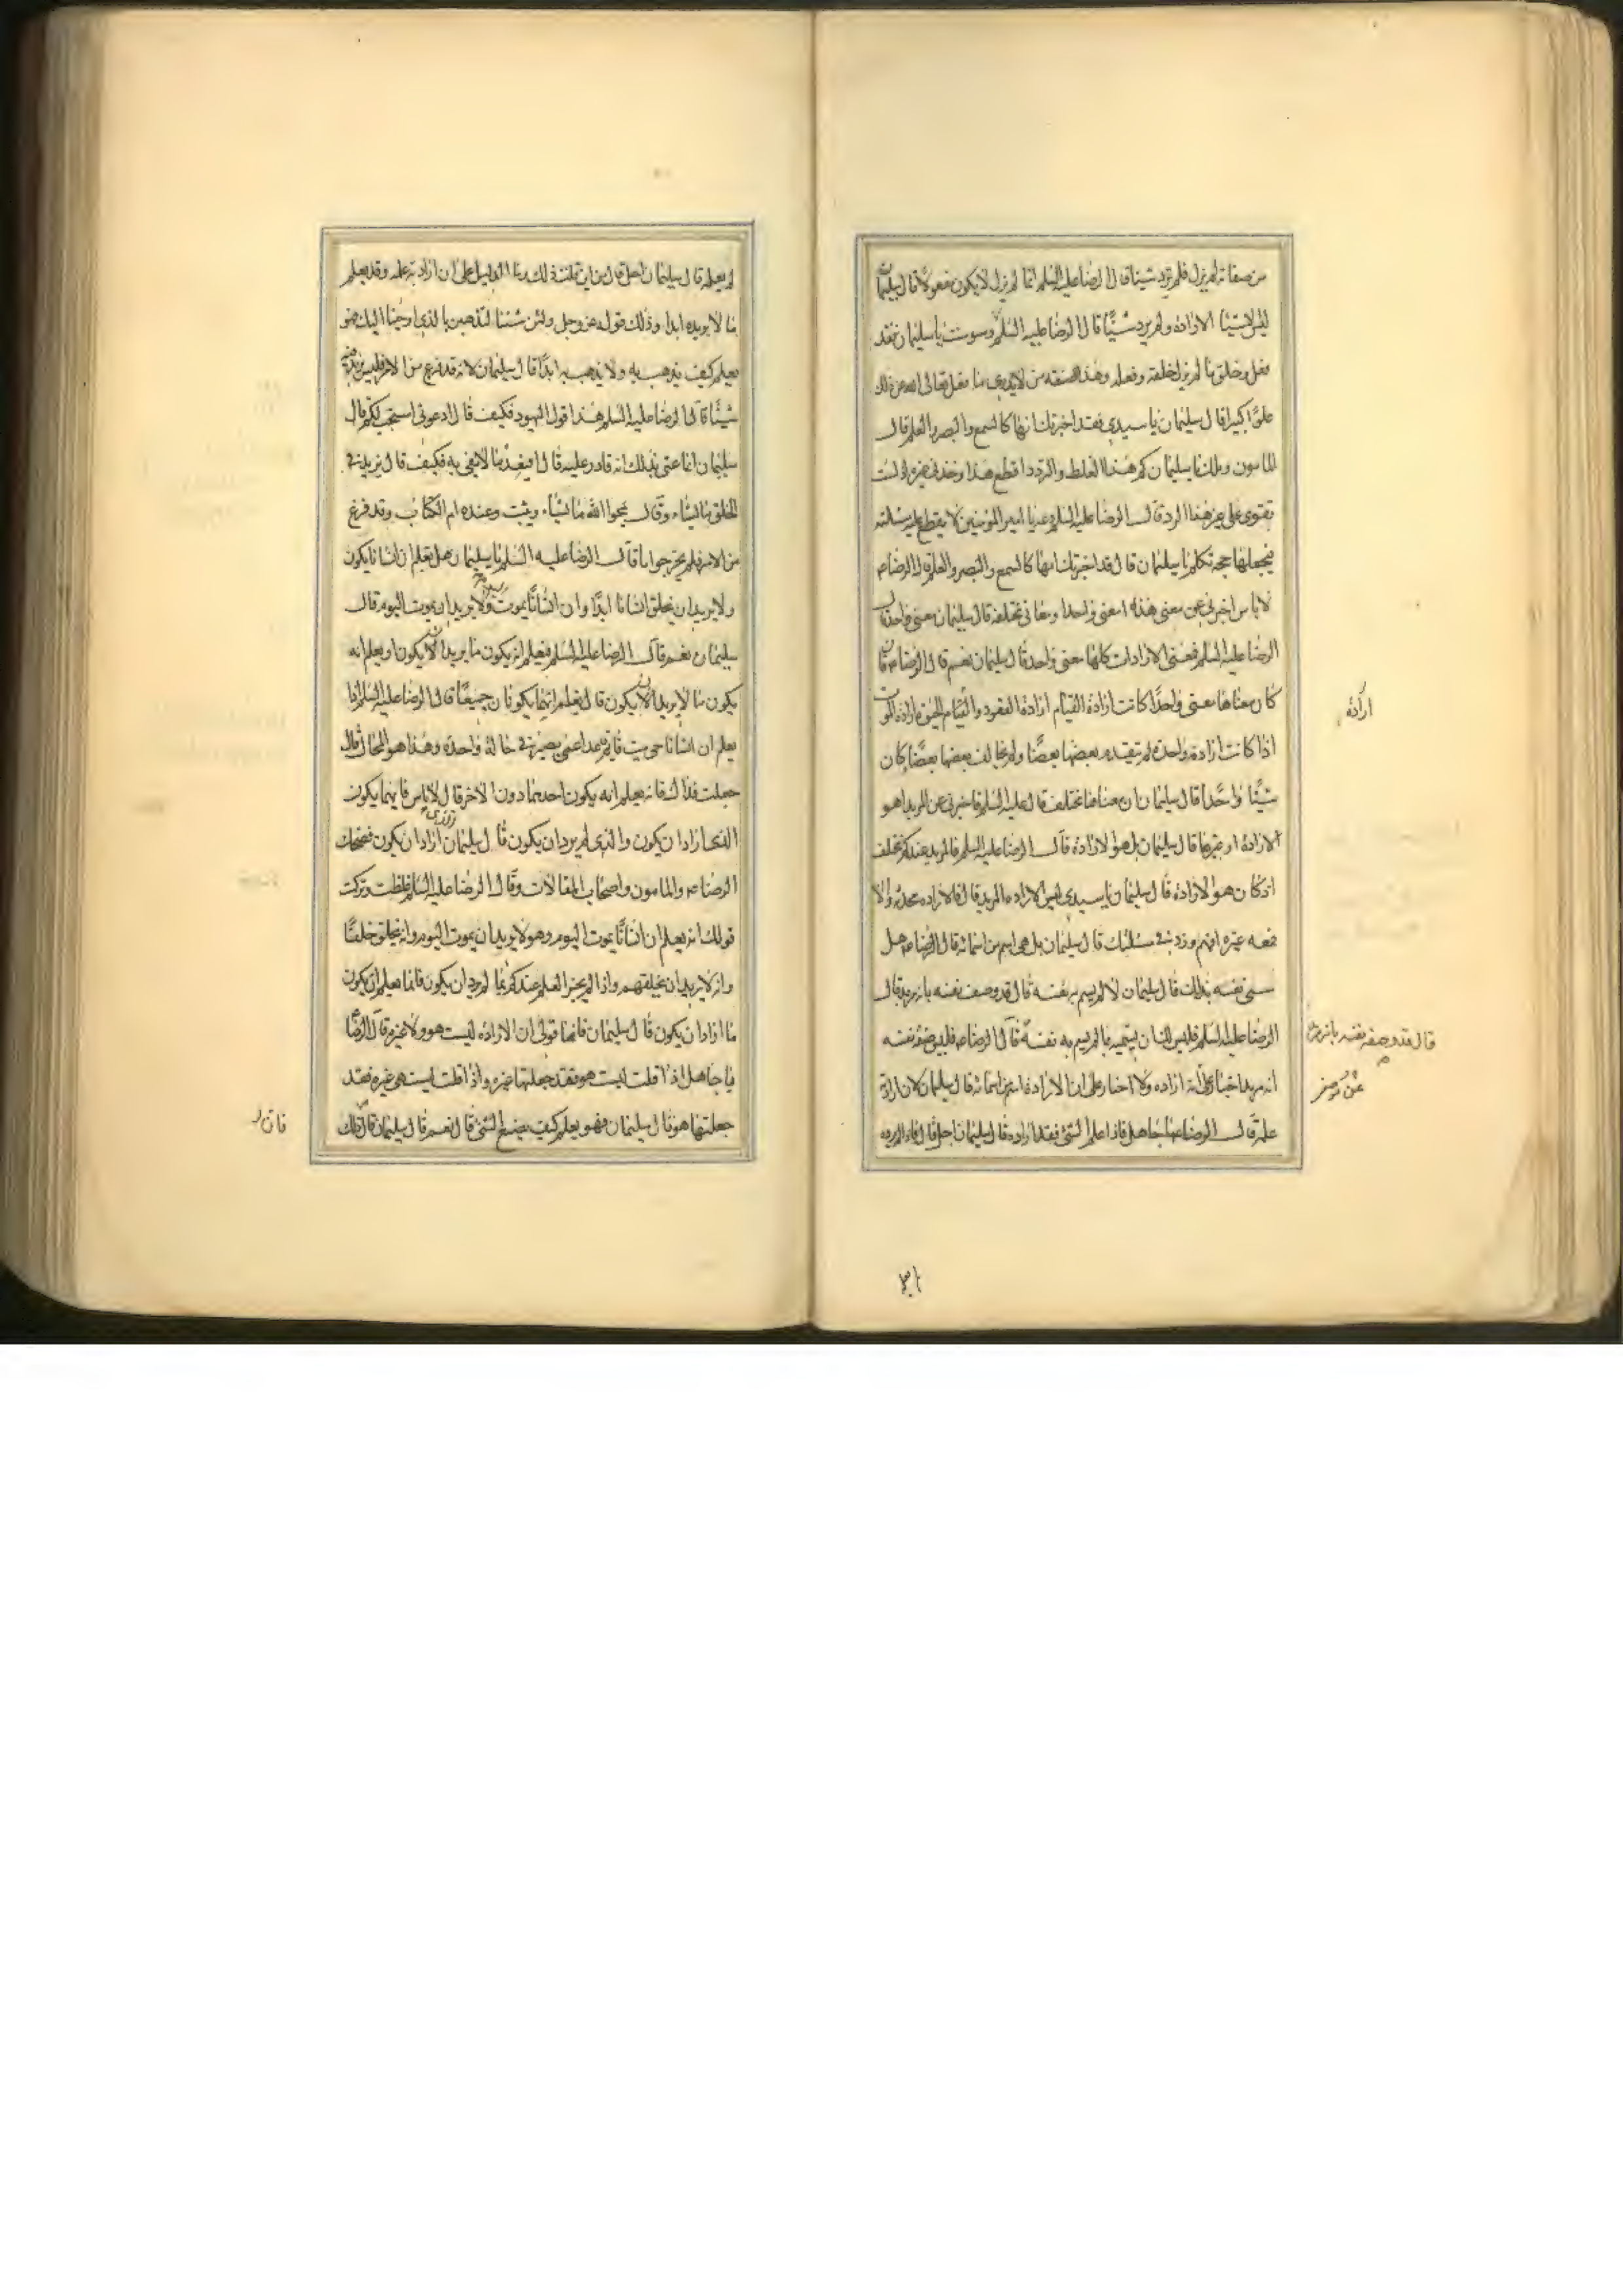 من صفاته لم يزل فلم يرد شيئا قال الرضا عليه السلم انما لم يزل لا يكون مفعولا قال سليمان
ليس الاشيا الارادة ولم يرد شيئا قال الرضا عليه السلم وسوست يا سليمان فقد
فعل وخلق ما لم يزل خلقه وفعله وهذه صفة من لا يدري ما فعل تعالى الله عن ذلك
علوا كبيرا قال سليمان يا سيدي فقد اخبرتك انها كالسمع والبصر والعلم قال
المامون ويلك يا سليمان كم هذا الغلط والتردد اقطع هذا وخذ في غيره اذ لست
تقوى على غير هذا الرد قال الرضا عليه السلم دعه يا امير المؤمنين لا تقطع عليه مسئلته
فيجعلها حجة تكلم يا سليمان قال قد اخبرتك انها كالسمع والبصر والعلم قال الرضا ع
لا باس اخبرني عن معنى هذه امعنى واحد ام معاني مختلفة قال سليمان معنى واحد قال
الرضا عليه السلم فمعنى الارادات كلها معنى واحد قال سليمان نعم قال الرضا ع فان
كان معناها معنى واحدا كانت ارادة القيام ارادة القعود وارادة الحيوة ارادة الموت
اذا كانت ارادته واحدة لم تتقدم بعضها بعضا ولم يخالف بعضها بعضا وكان
شيئا واحدا قال سليمان ان معناها مختلف قال عليه السلم فاخبرني عن المريد اهو
الارادة او غيرها قال سليمان بل هو الارادة قال الرضا عليه السلم فالمريد عندكم مختلف
اذ كان هو الارادة قال سليمان يا سيدي ليس الارادة المريد قال فالارادة محدثة والا
فمعه غيره افهم وزد في مسئلتك قال سليمان بل هي اسم من اسمائه قال الرضا ع هل
سمى نفسه بذلك قال سليمان لا لم يسم به نفسه قال قد وصف نفسه بانه مريد قال
الرضا عليه السلم فليس لك ان تسميه بما لم يسم به نفسه قال الرضا ع فليس صفته نفسه
انه مريد اخبارا عن انه ارادة ولا اخبارا عن ان الارادة اسم من اسمائه قال سليمان لان ارادته
علمه قال الرضا ع يا جاهل فاذا علم الشئ فقد اراده قال سليمان اجل قال فاذا لم يرده
ارادة
قال قد وصف نفسه بانه مريد
لم يعلمه قال سليمان اجل قال من اين قلت ذلك وما الدليل على ان ارادته علمه وقد يعلم
ما لا يريده ابدا وذلك قوله عز وجل ولئن شئنا لنذهبن بالذي اوحينا اليك فهو
يعلم كيف يذهب به ولا يذهب به ابدا قال سليمان لانه قد فرغ من الامر فليس يزيد فيه
شيئا قال الرضا عليه السلم هذا قول اليهود فكيف قال ادعوني استجب لكم قال
سليمان انما عنى بذلك انه قادر عليه قال افيعد ما لا يفي به فكيف قال يزيد في
الخلق ما يشاء وقال يمحوا الله ما يشاء ويثبت وعنده ام الكتاب وقد فرغ
من الامر فلم يحر جوابا قال الرضا عليه السلم يا سليمان هل يعلم ان انسانا يكون
ولا يريد ان يخلق انسانا ابدا وان انسانا يموت ولا يريد ان يموت اليوم قال
سليمان نعم قال الرضا عليه السلم فيعلم انه يكون ما يريد ان يكون او يعلم انه
يكون ما لا يريد ان يكون قال يعلم انهما يكونان جميعا قال الرضا عليه السلم اذا
يعلم ان انسانا حي ميت قايم قاعد اعمى بصير في حالة واحدة وهذا هو المحال قال
جعلت فداك فانه يعلم انه يكون احدهما دون الاخر قال لا باس فايهما يكون
الذي اراد ان يكون والذي لم يرد ان يكون قال سليمان الذي اراد ان يكون فضحك
الرضا ع والمامون واصحاب المقالات وقال الرضا عليه السلم غلطت وتركت
قولك انه يعلم ان انسانا يموت اليوم وهو لا يريد ان يموت اليوم وانه يخلق خلقا
وانه لا يريد ان يخلقهم واذا لم يجز العلم عندكم بما لم يرد ان يكون فانما يعلم ان يكون
ما اراد ان يكون قال سليمان فانما قولي ان الارادة ليست هو ولا غيره قال الرضا
يا جاهل اذا قلت ليست هو فقد جعلتها غيره واذا قلت ليست هي غيره فقد
جعلتها هو قال سليمان فهو يعلم كيف يصنع الشئ قال نعم قال سليمان فان ذلك